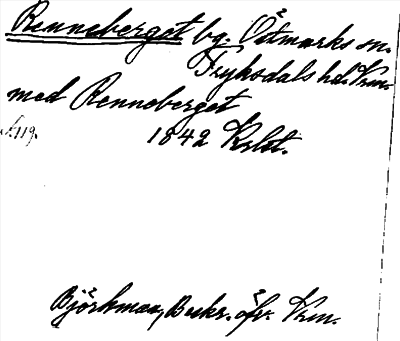 Renneberget bg. Östmarks sn.
Fryksdals hd. Vrm.
med Renneberget
s. 119.
1842 Krlst.
Björkman, Beskr. öfv. Vrm.